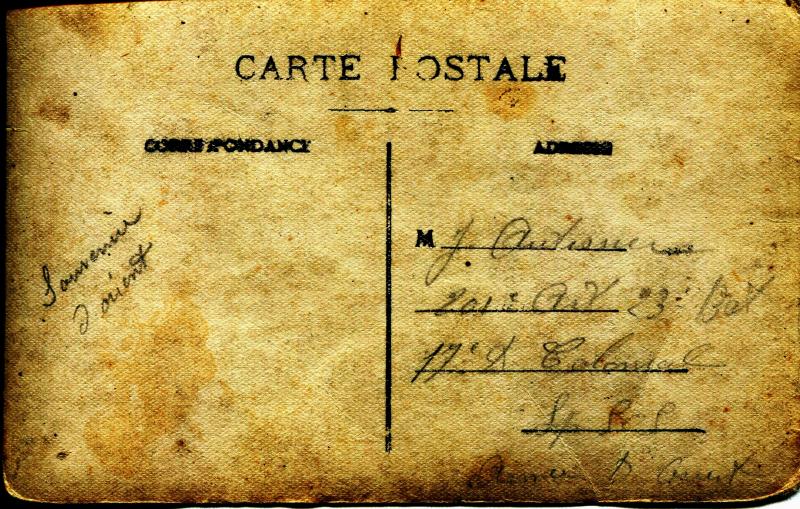 CARTE POSTALE
CORRESPONDANCE
ADRESSE
Souvenir
d orient
M J.
201e Art 23e Bat
17e D Coloniale
Sp
Armée D orient